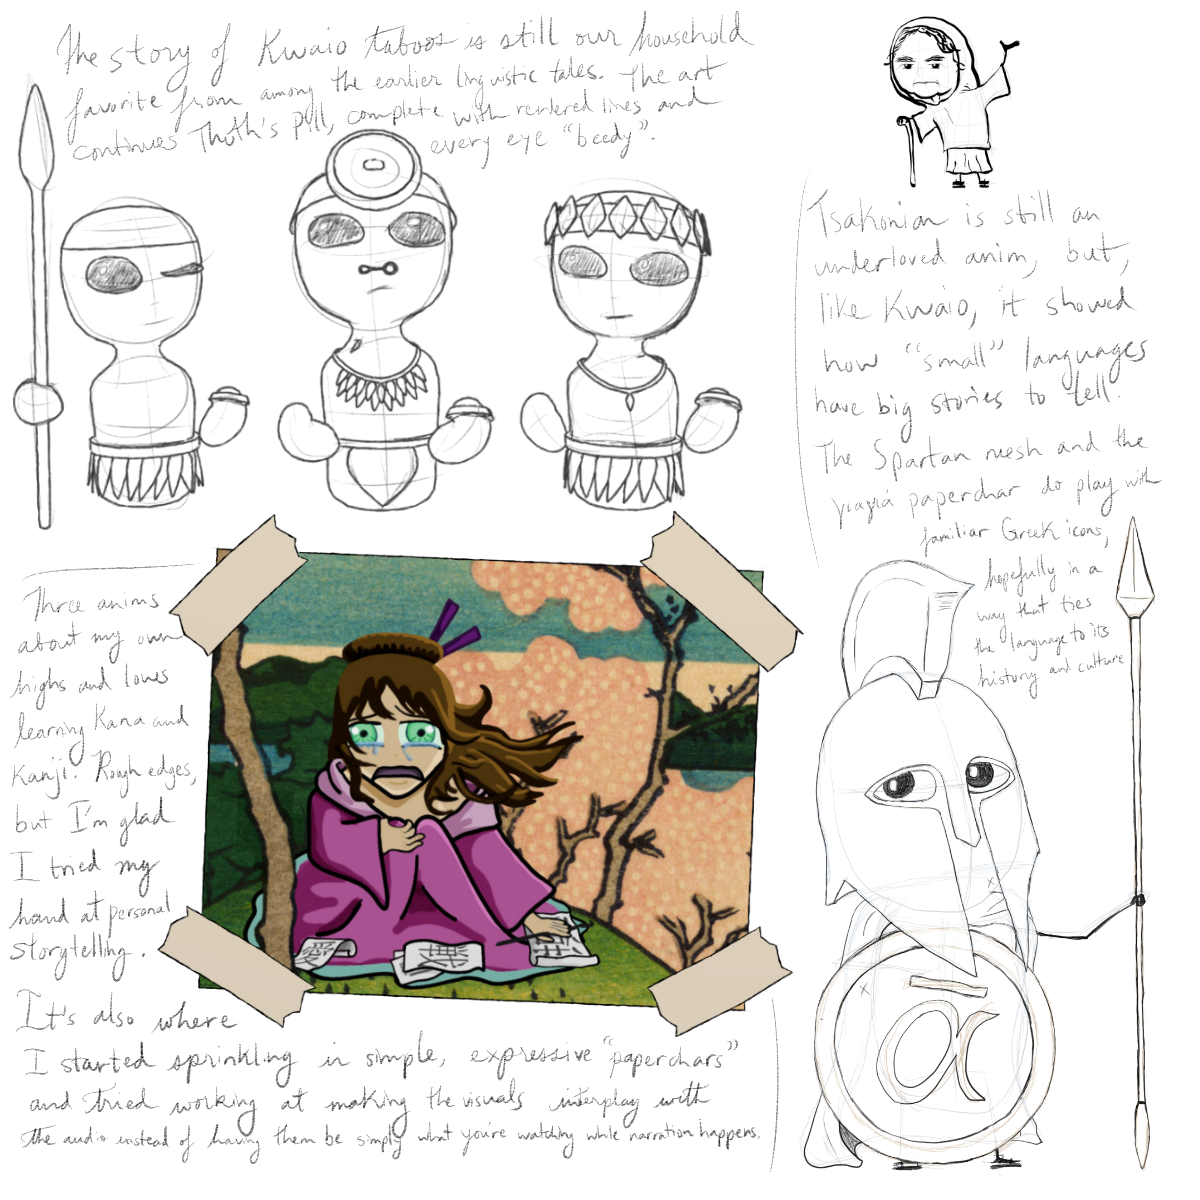 The story of Kwaio taboos is still our household
favorite from among the earlier linguistic tales. The art
continues Thoth's Pill, complete with rendered lines and
every eye "beedy".
Tsakonian is still an
underloved anim, but,
like Kwaio, it showed
how "small" languages
have big stories to tell.
The Spartan mesh and the
γιαγιά paperchar do play with
familiar Greek icons,
hopefully in a
way that ties
the language to its
history and culture
Three anims
about my own
highs and lows
learning Kana and
Kanji. Rough edges,
but I'm glad
I tried my
hand at personal
storytelling.
It's also where
I started sprinkling in simple, expressive "paperchars"
and tried working at making the visuals interplay with
the audio instead of having them be simply what you're watching while narration happens.
ᾱ